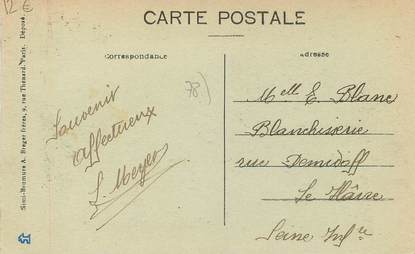 12 €
CARTE POSTALE
Correspondance
Adresse
78)
Souvenir
affectueux
L. Meyer
Melle E. Blanc
Blanchisserie
rue Demidoff
Le Hâvre
Seine Infre
Simi-Bromure A. Breger frères, 9, rue Thénard, Paris. Déposé.